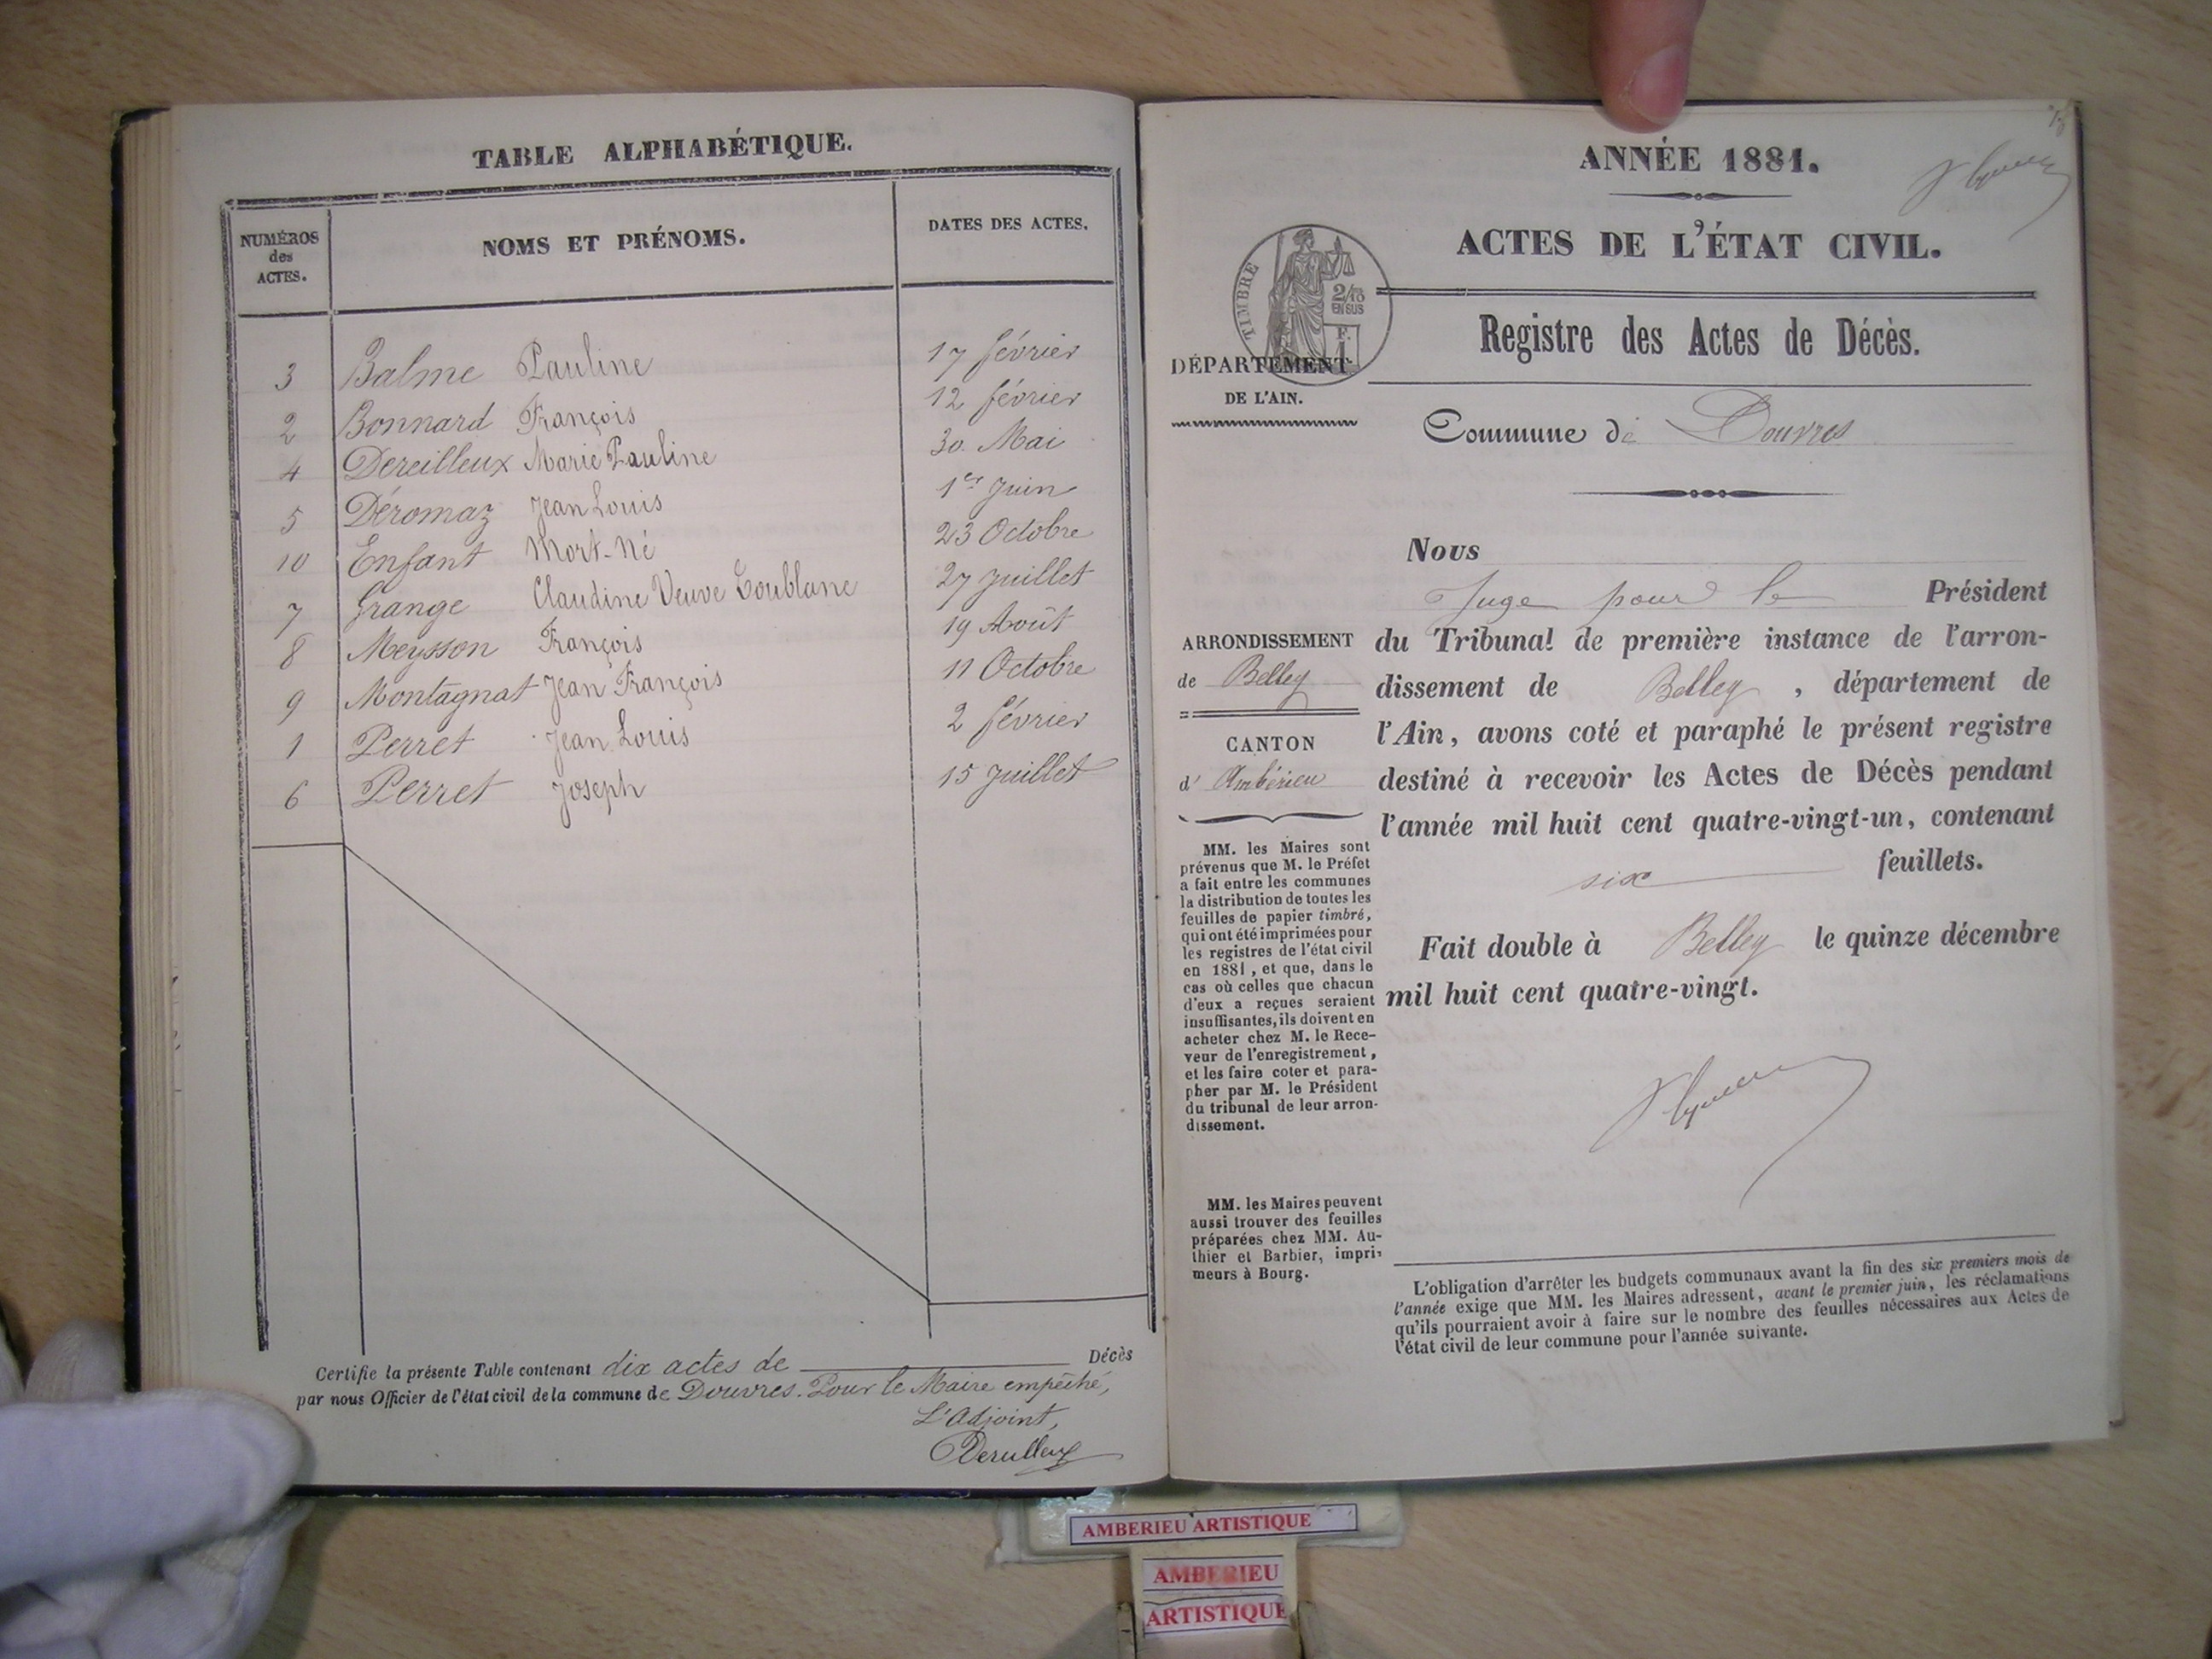 TABLE ALPHABÉTIQUE.
NUMÉROS
des
ACTES.
NOMS ET PRÉNOMS.
DATES DES ACTES.
3 Balme Pauline 17 février
2 Bonnard François 12 février
4 Dereilleux Marie Pauline 30 Mai
5 Déromaz Jean Louis 1er Juin
10 Enfant Mort-Né 23 Octobre
7 Grange Claudine Veuve Loublanc 27 Juillet
8 Meysson François 19 Août
9 Montagnat Jean François 11 Octobre
1 Perret Jean Louis 2 février
6 Perret Joseph 15 Juillet
Certifie la présente Table contenant dix actes de Décès
par nous Officier de l'état civil de la commune de Douvres. Pour le Maire empêché,
L'Adjoint,
ANNÉE 1881.
ACTES DE L'ÉTAT CIVIL.
TIMBRE
2/10
EN SUS
F.
1
Registre des Actes de Décès.
DÉPARTEMENT
DE L'AIN.
Commune de Douvres
Nous
Juge pour le Président
du Tribunal de première instance de l'arron-
dissement de Belley, département de
l'Ain, avons coté et paraphé le présent registre
destiné à recevoir les Actes de Décès pendant
l'année mil huit cent quatre-vingt-un, contenant
six feuillets.
Fait double à Belley le quinze décembre
mil huit cent quatre-vingt.
ARRONDISSEMENT
de Belley
CANTON
d' Ambérieu
MM. les Maires sont
prévenus que M. le Préfet
a fait entre les communes
la distribution de toutes les
feuilles de papier timbré,
qui ont été imprimées pour
les registres de l'état civil
en 1881, et que, dans le
cas où celles que chacun
d'eux a reçues seraient
insuffisantes, ils doivent en
acheter chez M. le Rece-
veur de l'enregistrement,
et les faire coter et para-
pher par M. le Président
du tribunal de leur arron-
dissement.
MM. les Maires peuvent
aussi trouver des feuilles
préparées chez MM. Au-
thier et Barbier, impri-
meurs à Bourg.
L'obligation d'arrêter les budgets communaux avant la fin des six premiers mois de
l'année exige que MM. les Maires adressent, avant le premier juin, les réclamations
qu'ils pourraient avoir à faire sur le nombre des feuilles nécessaires aux Actes de
l'état civil de leur commune pour l'année suivante.
AMBERIEU ARTISTIQUE
AMBERIEU
ARTISTIQUE